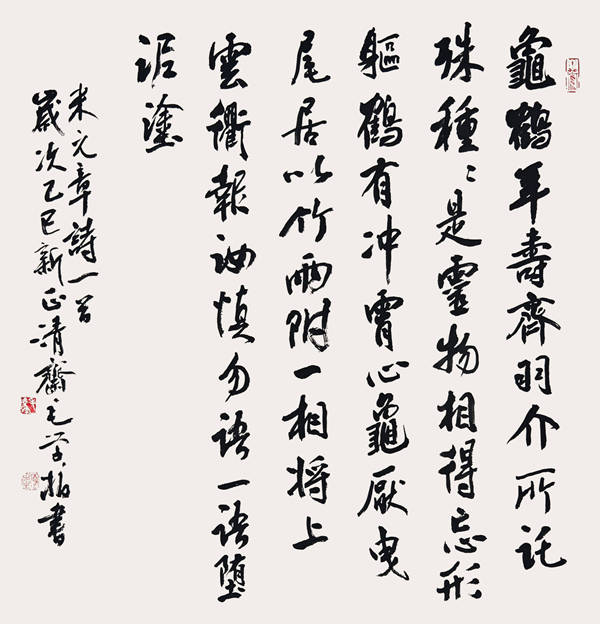 龜鶴年壽齊羽介所託
殊種〻是靈物相得忘形
軀鶴有冲霄心龜厭曳
尾居以竹兩附一相將上
雲衢報汝慎勿語一語墮
泥塗
米元章詩一首
歲次乙巳新正清齋書